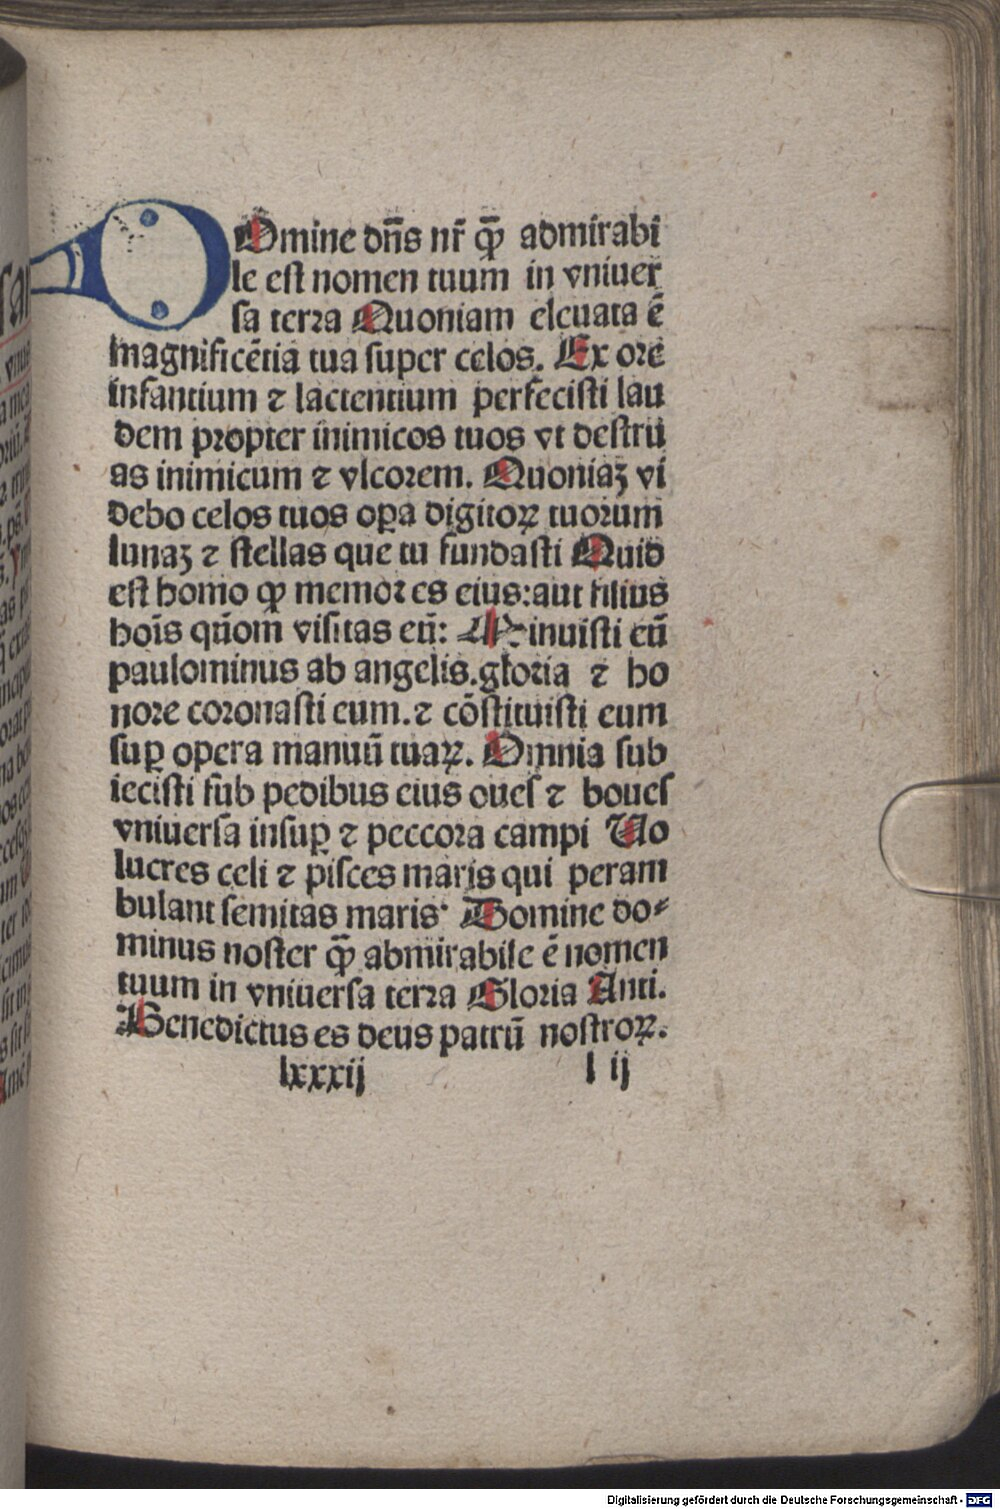 DOmine dn̄s nr̄ qȝ̄ admirabi
le est nomen tuum in vniuer
sa terra Quoniam eleuata ē
magnificētia tua super celos. Ex ore
infantium ⁊ lactentium perfecisti lau
dem propter inimicos tuos vt destru
as inimicum ⁊ vlcorem. Quoniaȝ vi
debo celos tuos oꝑa digitoꝝ tuorum
lunaȝ ⁊ stellas que tu fundasti Quid
est homo ꝙ memor es eius: aut filius
hoīs qn̄om̄ visitas eū: Minuisti eū
paulominus ab angelis. gloria ⁊ ho
nore coronasti eum. ⁊ cōstituisti eum
suꝑ opera manuū tuaꝝ. Omnia sub
iecisti sub pedibus eius oues ⁊ boues
vniuersa insuꝑ ⁊ peccora campi Uo
lucres celi ⁊ pisces maris qui peram
bulant semitas maris. Domine do⸗
minus noster qȝ̄ abmirabile ē nomen
tuum in vniuersa terra Gloria Anti.
Benedictus es deus patrū nostroꝝ.
lxxxij l ij
Digitalisierung gefördert durch die Deutsche Forschungsgemeinschaft - DFG